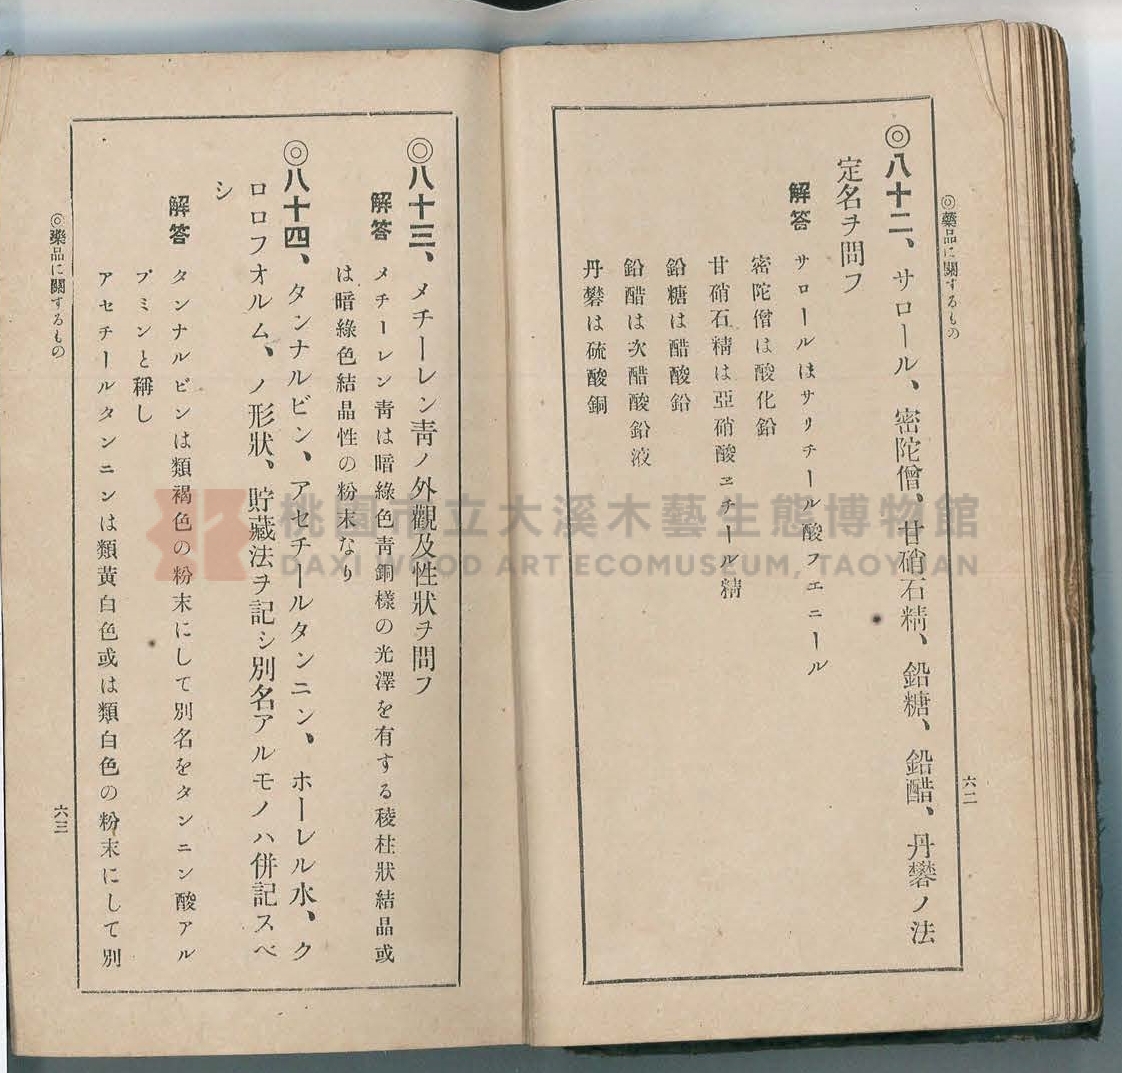 ◎藥品に關するもの
六二
◎八十二、サロール、密陀僧、甘硝石精、鉛糖、鉛醋、丹礬ノ法
定名ヲ問フ
解答 サロールはサリチール酸フェニール
密陀僧は酸化鉛
甘硝石精は亞硝酸ヱチール精
鉛糖は醋酸鉛
鉛醋は次醋酸鉛液
丹礬は硫酸銅
◎八十三、メチーレン靑ノ外觀及性狀ヲ問フ
解答 メチーレン靑は暗綠色靑銅樣の光澤を有する稜柱狀結晶或
は暗綠色結晶性の粉末なり
◎八十四、タンナルビン、アセチールタンニン、ホーレル水、ク
ロロフオルム、ノ形狀、貯藏法ヲ記シ別名アルモノハ併記スベ
シ
解答 タンナルビンは類褐色の粉末にして別名をタンニン酸アル
ブミンと稱し
アセチールタンニンは類黃白色或は類白色の粉末にして別
◎藥品に關するもの
六三
桃園市立大溪木藝生態博物館
DAXI WOOD ART ECOMUSEUM, TAOYUAN